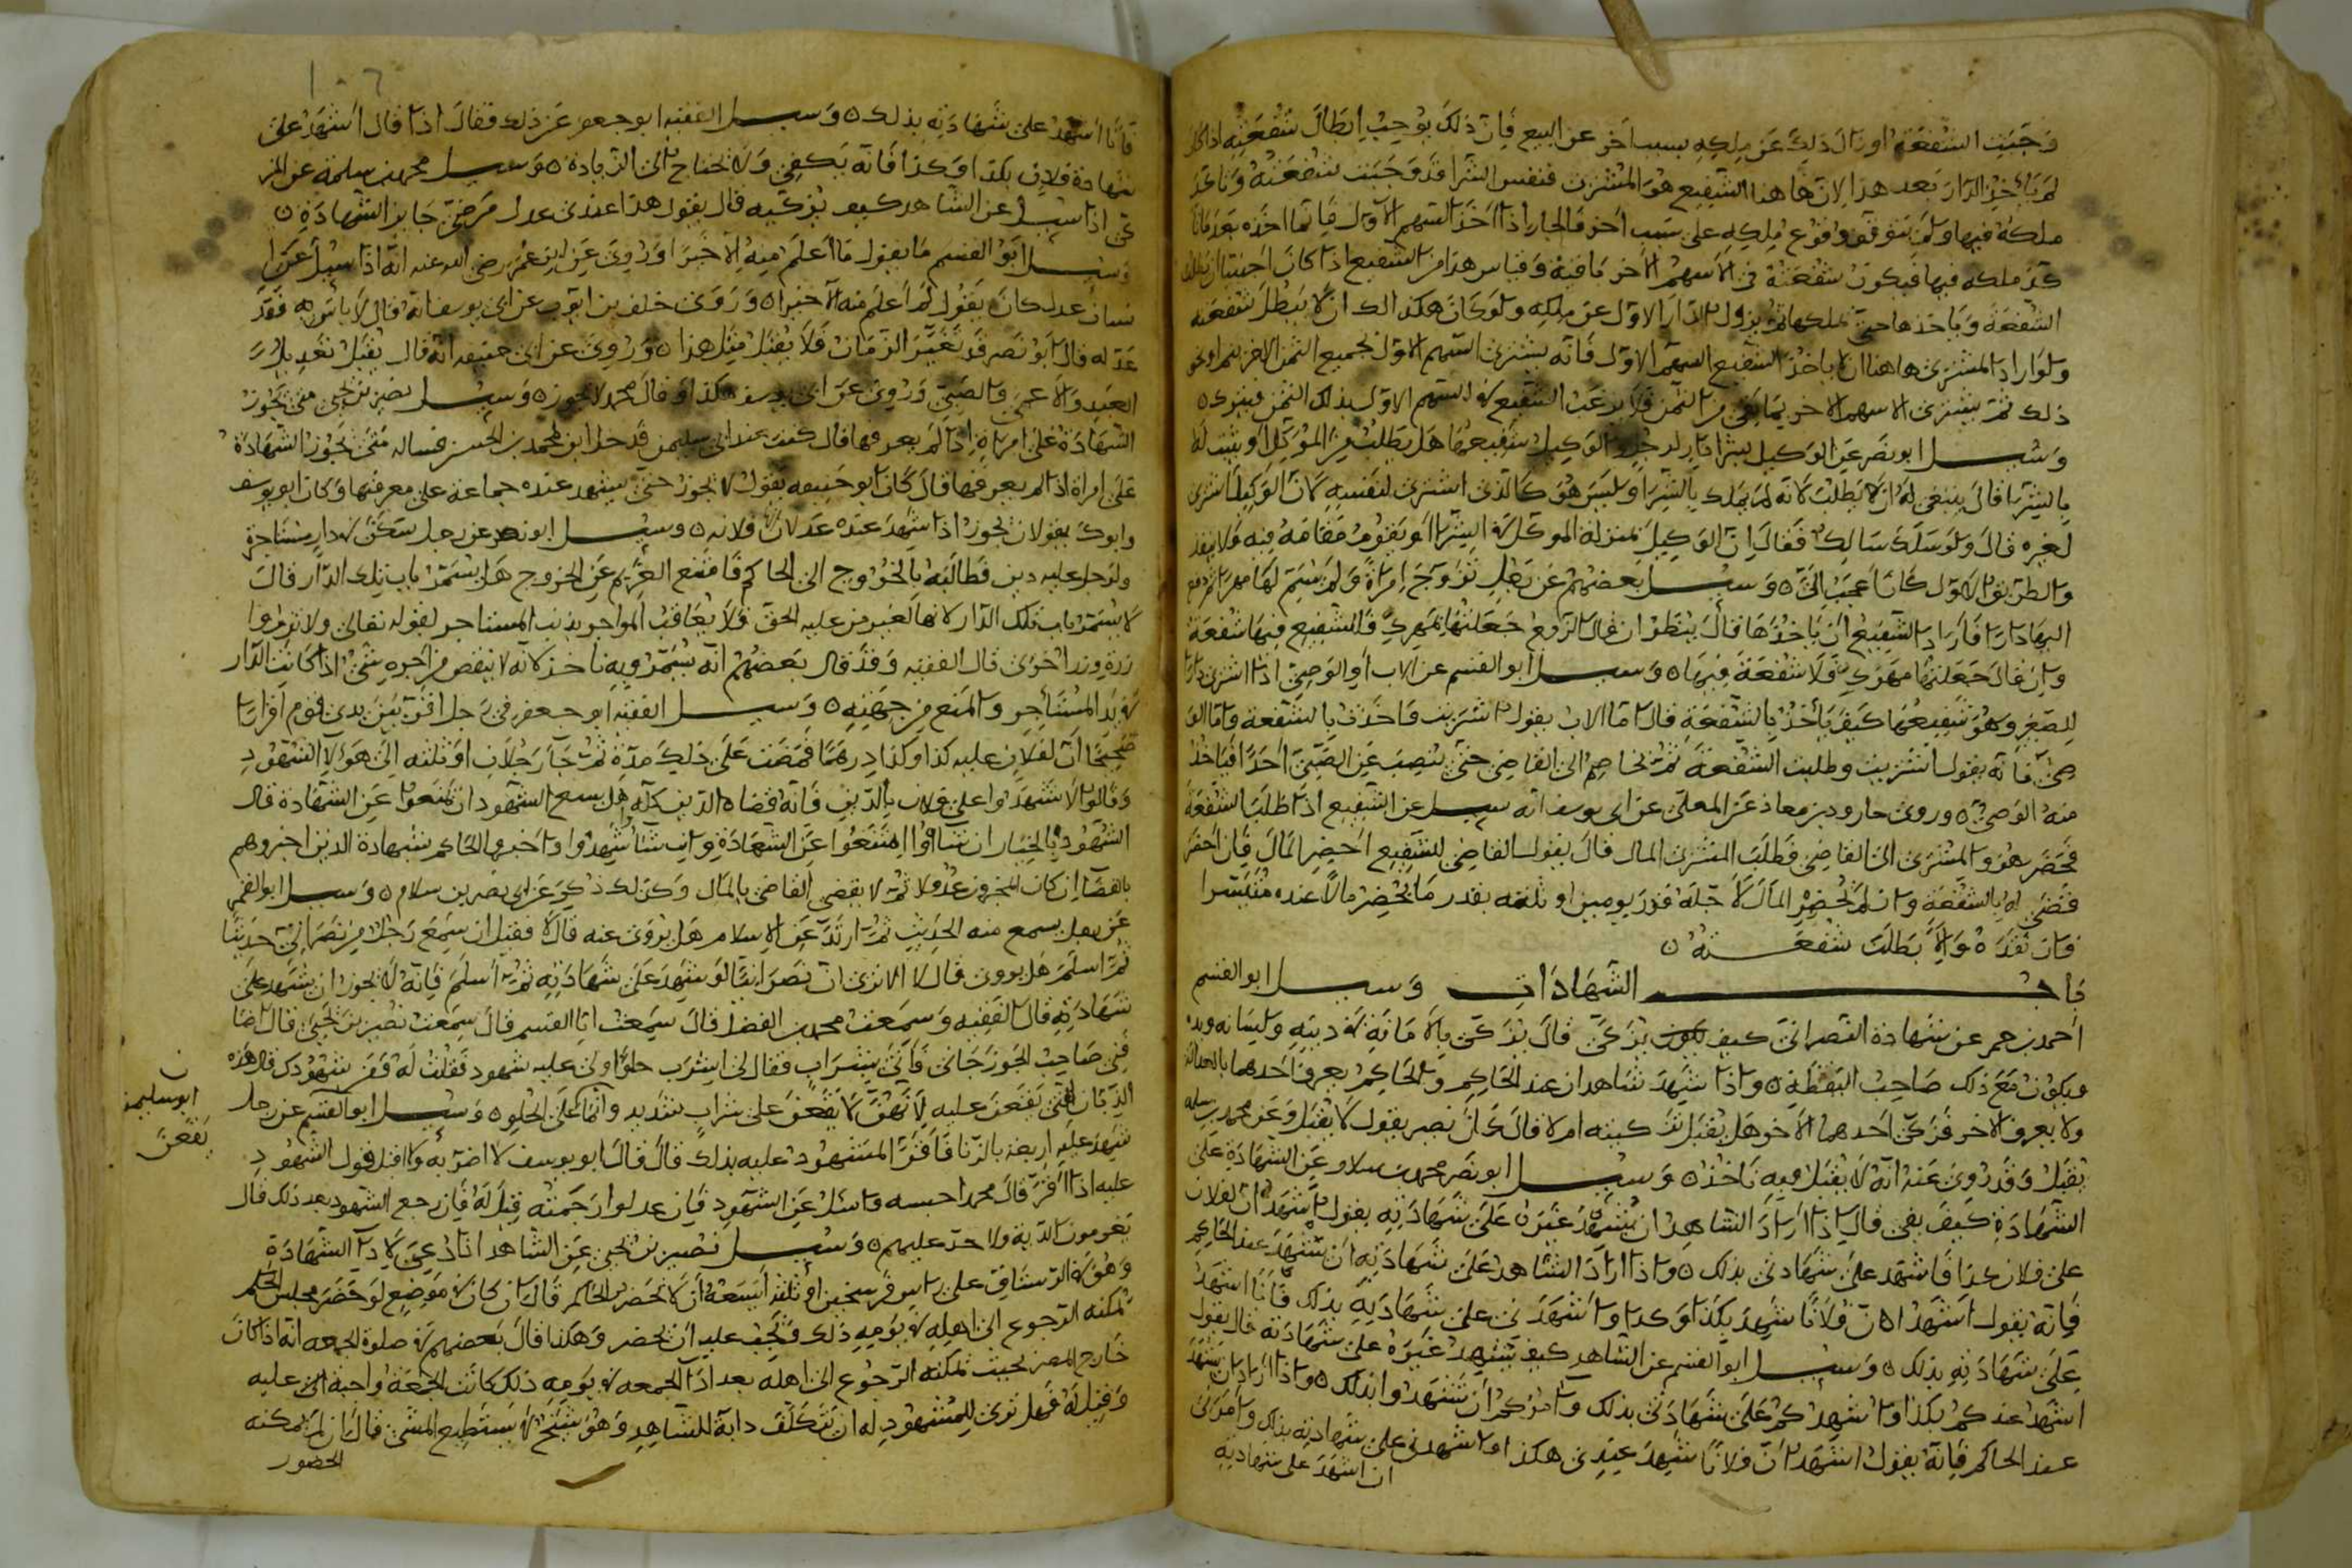 وَجَبَتِ الشفعَة او زال ذلك عَن مِلكِهِ بسبب اخر عن البيع فَاِنّ ذلكَ يوجبْ اِبطَالَ شُفعَتِه اذا كان
لم يَأخُذِ الدّارَ بَعد هذا لان هاهنا الشَفيع هُوَ المُشْتَرِى فنفس الشرا قد وَجَبَت شُفعَتُهُ
ملكهُ فيها ولم يتوقف وقوع مِلكِهِ على سَبب اخر فالجار اذا اخذ السّهم الاوّل فانما اخذه بَعد
ملكه فيها فيكون شفعته فى الاسهم الاخر باقية وَقياس هذا من الشفيع اذا كان اجنبيا
الشفعَةَ وَياخذها حتى يملكها ثم يزول الدّارَ الاوّل عَن مِلكِهِ ولو كانَ هكذا لكان لا يَبْطُل شفعَته
ولو اراد المشترى هاهنا ان لا ياخُذ الشفيع السهمَ الاوّل فَاِنّه يشترى السّهم الاوّل بجميع الثمن الا درهم او نحو
ذلك ثمّ يشترى الاسهم الاخر بما بقى من الثمن فلا يَرغب الشفيع فى السّهم الاوّل بذلك الثمن فيتركه
وَسُئِل ابو نصر عَنِ الوَكيل بشرا دار لرجل والوَكيلُ شفيعُها هَل يَطلبُ مِنَ المُوَكّل او يثبت له
بالشِرا قالَ ينبغى لَهُ ان لا يَطلبْ لانّه لم يَملك بالشِرَا وليسَ هُوَ كالّذى اشترى لنفسِهِ لانّ الوَكِيلَ اشترى
لغيره قالَ ولو سَلَكَ سَالك فَقالَ اِنّ الوَكيلَ بمنزلة الموكّل فى الشِرا او يَقوُمُ مَقَامَهُ فيه فلا يبعد
والطريق الاوّل كانَ اَعجَبَ اِلىّ وَسُئِل بَعضهُم عَن رَجُلٍ تَزَوّجَ اِمرَاةً وَلَم يُسَمّ لَها مَهرًا ثم دفع
اليهَا دارًا فَأرَادَ الشَفيعُ اَن يَأخُذَهَا قالَ يُنظَر ان قال الزّوج جَعَلتُها بمَهرِكِ فالشفيع فيها شفعَة
وان قالَ جَعَلتُها مَهرَكِ فَلَا شفعَةَ فِيهَا وَسُئل ابو القسم عن الاب او الوَصِىّ اذا اشترى دارًا
للصّغير وهُوَ شَفِيعُها كَيفَ يَأخُذُ بالشفعَةِ قال اما الاب يقول اشتريت وَاَخَذتُ بالشفعَة وَامّا الو
صِىّ فانه يقول اشتريت وطلبت الشفعَةَ ثمّ يخاصم الى القاضى حتى يَنصِبَ عَنِ الصّبىّ اَحَدًا فيَاخُذ
منهُ الوَصِىّ وروى جارود بن معاذ عَن المعلّى عن ابى يوسف انه سُئل عن الشفيع اذا طَلَبَ الشفعَةَ
فَحَضَرَ هُو وَالمشترى الى القاضى فَطَلَبَ المشترى المال قالَ يقول القاضى للشفيع اَحضِر المالَ فَاِن اَحضَرَ
قَضَى له بالشفعَةِ وان لم يُحضِر المالَ اَجّلَهُ قَدرَ يومين او ثلثه بقدر مَا يُحضِرُ مالًا عنده مُتَيَسّرا
فان نقَدَهُ وَاِلّا بَطَلَت شفعَتُهُ
بَابُ الشهَادَات وَسُئل ابو القسم
احمد بن حم عن شهادة النصرانىّ كيف يُزَكّى قالَ يُزَكّى بالاَمانَةِ فى دينِهِ ولِسَانه ويده
ويكون مَعَ ذلك صَاحِبَ اليقظة واذا شَهِدَ شاهدان عند الحَاكِمِ والحَاكِمُ يعرف اَحَدهما بالعدالة
ولا يعرف الاخر فزكّى اَحَدهما الاخر هَل يُقبَل تزكيته ام لا قالَ كانَ نصير يقول لا يُقبَل وَعَن محمد بن سلمه
يُقبَل وَقَد رُوِىَ عَنه انّهُ لا يُقبَل وَبِهِ نَاخُذ وَسُئل ابو نَصر محمد بن سلام عَنِ الشهَادَةِ عَلَى
الشهَادَةِ كَيفَ هى قالَ اذا اَرَادَ الشاهِدُ ان يُشهِدَ غَيرَهُ عَلَى شَهَادَتِهِ يقول اَشهَدُ انّ لفلان
على فلان كذا فَاشهَد عَلَى شَهَادتى بذلك واذا ارَادَ الشاهدُ عَلَى شَهَادَتِهِ ان يَشهَدَ عند الحَاكِمِ
فَاِنّه يقول اَشهَدُ انّ فُلانًا شَهِدَ بكذا وكذا وَاَشهَدَنى عَلَى شَهَادَتِهِ بذلك فَاَنَا اَشهَدُ
عَلَى شَهَادَتِهِ بذلك وَسُئل ابو القسم عن الشاهد كيف يُشهِدُ غَيرَهُ على شَهَادَتِهِ قال يقول
اَشهَدُ عندكم بكذا واُشهِدُكُم عَلَى شَهَادَتى بذلك وَآمُرُكُم اَن تَشهَدُوا بذلك واذا اَرَادَ ان يَشهَدَ
عند الحاكم فَاِنّه يقول اَشهَدُ اَنّ فلانًا شَهِدَ عِندِى هكذا واَشهدنى على شهادتِهِ بذلك وَاَمَرَنى
ان اَشهَدَ على شهادتِهِ
١٠٦
فَاَنَا اَشهَدُ عَلَى شَهَادَتِهِ بذلك وَسُئل الفقيه ابو جعفر عَن ذلك فقالَ اذا قال اَشهَدُ على
شَهادة فلان بكذا وكذا فَانّه يَكفى وَلا يحتاج الى الزيادة وَسُئل محمد بن سلمة عن المز
كّى اذا سُئل عن الشاهد كيف يُزَكّيه قال يقول هذا عندى عدل مَرضىّ جَايز الشهادَةِ
وَسُئل ابو القسم مَا يقول مَا اَعلَمُ مِنهُ اِلّا خَيرًا وَرُوِىَ عَنِ ابن عُمَرَ رضى الله عنه انّه اذا سُئِلَ عَن ا
نسان عدل كانَ يَقُول لَم اَعلَم منه الّا خَيرًا وَرَوَى خلف بن ايّوب عن ابى يوسف انه قال لا باس به فَقَد
عدّله قال ابو نَصر قَد تَغَيّرَ الزّمَان فَلا يُقبَل مِثل هذا وَرُوِىَ عَن ابى حنيفه انّه قال يُقبَل تَعدِيلُ
العَبدِ وَالاَعمَى والصَبِىّ وَرُوِىَ عَن ابى يوسف هكذا وقالَ محمد لا يجوز وَسُئل نصير بن يحيى متى يَجُوز
الشهَادَةُ عَلَى امرَاةٍ اذا لَم يعرفها قال كنت عند ابى سليمن فدخل ابن لمحمد بن الحسن فساله متى يَجُوز الشهادَة
عَلَى امراة اذا لم يعرفها قالَ كانَ ابو حَنيفه يَقول لا يجوز حتى يشهد عنده جماعة على معرفتها وَكان ابو يوسف
وابوك يقولان يجوز اذا شَهِدَ عنده عَدلان انها فلانه وسُئل ابو نصر عن رجل سَكَنَ فى دارٍ مستاجرة
ولرَجل عليه دين فطالَبَهُ بالخُرُوج الى الحاكم فامتنع الغَرِيم عَنِ الخروج هَل يُسَمّر باب تلك الدّار قالَ
لا يُسَمّر باب تلك الدّار لانها لغير من عليه الحق وَلا يُعَاقَبُ المواجر بذنب المستاجر لقوله تعالى ولا تزر وا
زرة وزر اخرى قال الفقيه وَقَد قالَ بَعضهُم انّه يُسَمّرُ وبه نأخذ لانّه لا ينقص من اَجره شئ اذا كانت الدّار
فى يَد المُستَأجِرِ والمَنع من جِهَتِهِ وَسُئل الفقيه ابو جعفر فى رجل اقرّ بَينَ يدى قوم اقرارا
صَحِيحًا اَنّ لفلان عليه كذا وكذا دِرهَمًا فَمَضَت عَلَى ذلِكَ مُدّةٌ ثمّ جَاءَ رَجُلَان او ثلثه اِلى هَؤلاءِ الشهُودِ
وَقالوا لا تَشهَدُوا على فلان بالدّين فَانّه قضاه الدّين كلّه هل يسع الشهود ان يَمتنعوا عَنِ الشهَادة قال
الشهُودُ بالخِيَار ان شاؤا امتنعُوا عَنِ الشهَادَةِ وان شاؤا شَهِدُوا واَخبَروا الحاكم بشَهادة الذين اخبروهم
بالقضا اِن كان المخبرون عدُولا ثمّ لا يقضى القاضى بالمَال وَكذلك ذُكِرَ عَن ابى نصر بن سلام وَسُئل ابو القسم
عَن رجل يسمع منه الحَدِيث ثمّ ارتَدّ عَنِ الاسلام هَل يُروَى عنه قال لا فقيل ان سَمِعَ رَجُل من نَصرَانىّ حَدِيثًا
ثمّ اسلَمَ هَل يروى قال لا الا ترى انّ نَصرَانيًّا لَو شَهِدَ عَلَى شَهَادَتِهِ ثمّ اسلَمَ فَاِنّهُ لا يجوز ان يشهَد عَلَى
شَهَادَتِهِ قالَ الفقيه وَسَمِعتُ محمد بن الفضل قالَ سَمِعتُ ابا القسم قالَ سَمِعتُ نُصَير بن يَحيَى قال
فنى صَاحِبُ الجوزجانى فَاَتَى بِشَرَابٍ فقال لى اشرَب حلوًا ولى عليه شهود فَقُلتُ لَهُ فمن شهُودك قال هَذه
الذِبّان التى تَقَعنَ عليه لِاَنّهُنّ لا يَقَعنَ على شَرابٍ شَدِيد وانّما على الحُلو وَسُئل ابو القسم عن رجل
شَهِدَ عَليهِ اَربعة بالزّنا فَاَقَرّ المشهُود عليه بذلك قالَ قالَ ابو يوسف لا اضربه ولا اقبل قول الشهُودِ
عليه اذا اَقَرّ قالَ محمد احبسه واسئل عَنِ الشهُودِ فَاِن عدلوا رَجَمتُه قيلَ لَهُ فَاِن رجع الشهود بعد ذلك قال
يَغرمون الدّية ولا حدّ عليهم وَسُئل نُصَير بن يحيى عَنِ الشاهد اذا دُعِىَ لِاَداءِ الشهَادَةِ
وَهُوَ فى الرّستاق على راس فرسَخين او ثلثة اَيَسَعُهُ اَن لا يَحضرَ الحاكم قالَ ان كانَ فى مَوضِعٍ لَو حَضَرَ مجلس الحكم
يُمكنه الرّجوع الى اَهلِهِ فى يَومِهِ ذلك يجب عليه اَن يَحضر وَهكذا قالَ بَعضهم فى صلوة الجمعه انّه اذا كانَ
خَارج المصر بحيث يُمكنه الرّجُوع الى اهله بعد اداءِ الجمعه فى يَومِهِ ذلك كانَت الجُمعَةُ واجبة عليه
وَقيلَ لَهُ فهل ترى لِلمشهُودِ له ان يَتَكَلّفَ دابة للشاهِدِ وَهُوَ شَيخ لا يَستَطيع المشى قالَ ان لم يمكنه
الحضور
ابو سليمن
يَقَعنَ